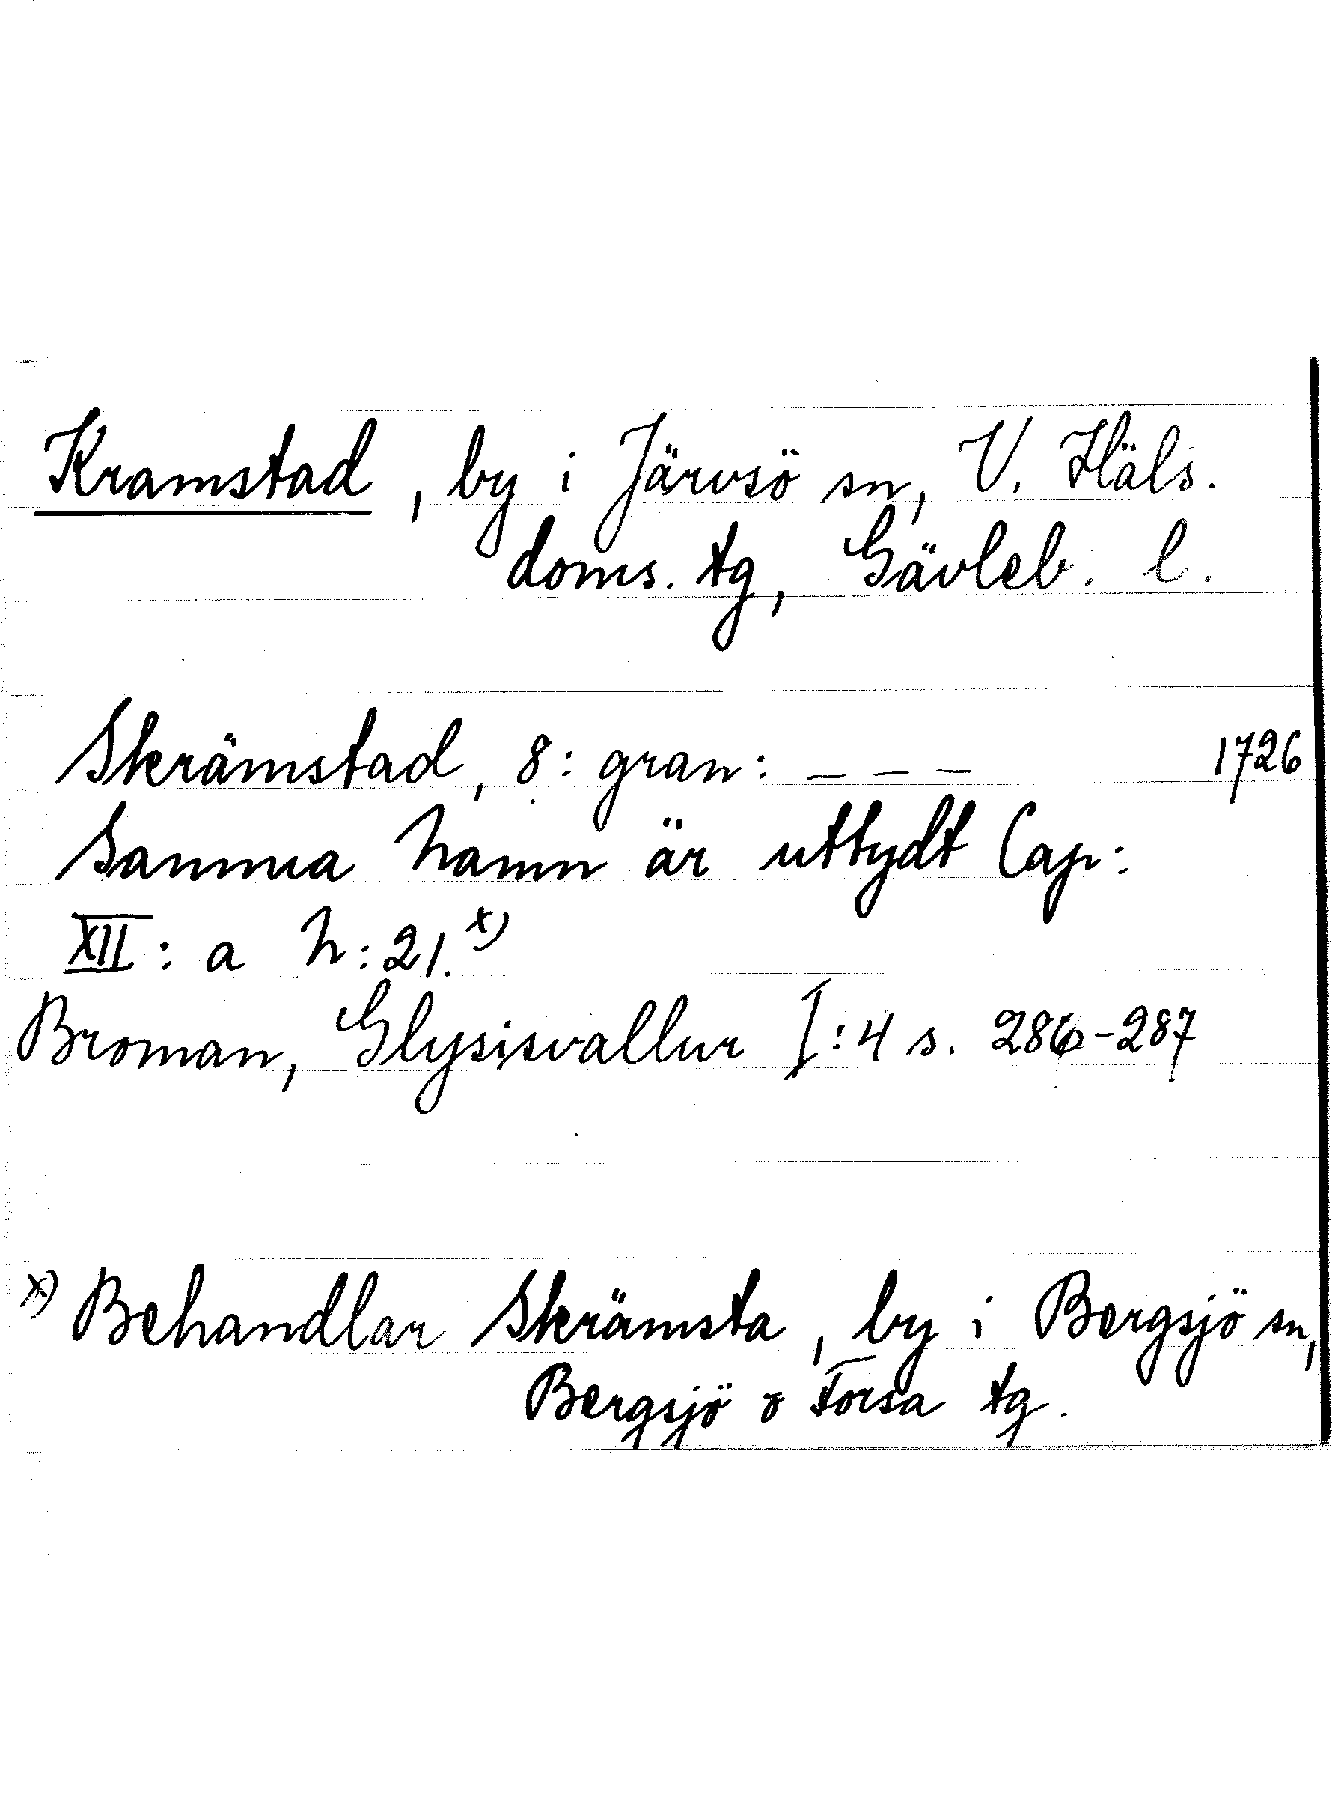 Kramstad, by i Järvsö sn, V. Häls.
doms. tg, Gävleb. l.
Skrämstad, 8: gran: – – – 1726
Samma Namn är uttydt Cap:
XII: a N: 21. x)
Broman, Glysisvallur I:4 s. 286-287
x) Behandlar Skrämsta, by i Bergsjö sn,
Bergsjö o Forsa tg.